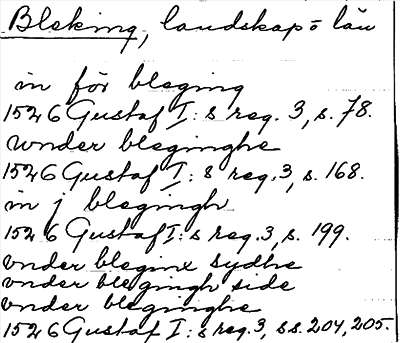 Bleking, landskap o län
in för bleging
1526 Gustaf I: s reg. 3, s. 78.
wnder bleginghe
1526 Gustaf I: s reg. 3, s. 168.
in j blegingh
1526 Gustaf I: s reg. 3, s. 199.
vnder bleginx sydhe
vnder blegingh side
vnder bleginghe
1526 Gustaf I: s reg. 3, ss. 204, 205.